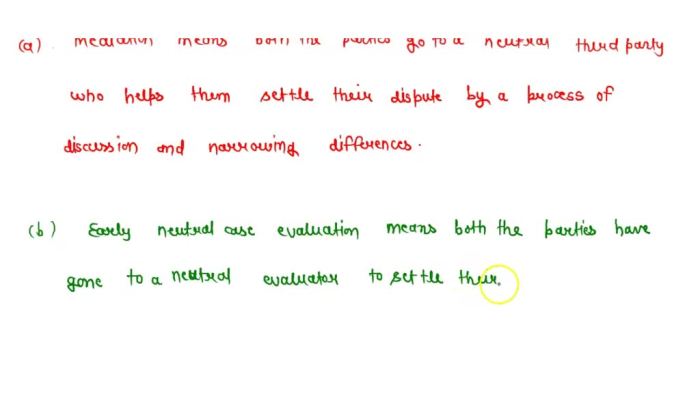 (a). Mediation means both the parties go to a neutral third party
who helps them settle their dispute by a process of
discussion and narrowing differences.
(b) Early neutral case evaluation means both the parties have
gone to a neutral evaluator to settle their.